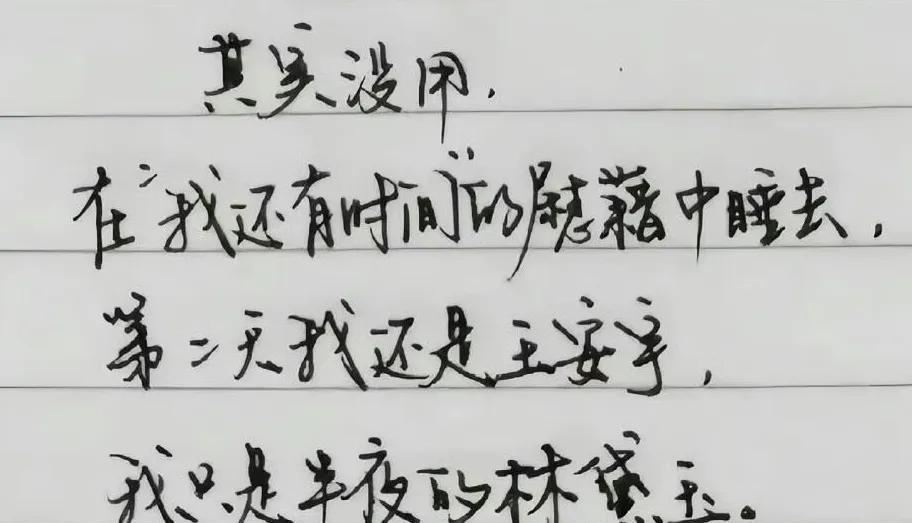 其实没用.
在“我还有时间”的慰藉中睡去,
第二天我还是王安宇,
我只是半夜的林黛玉。